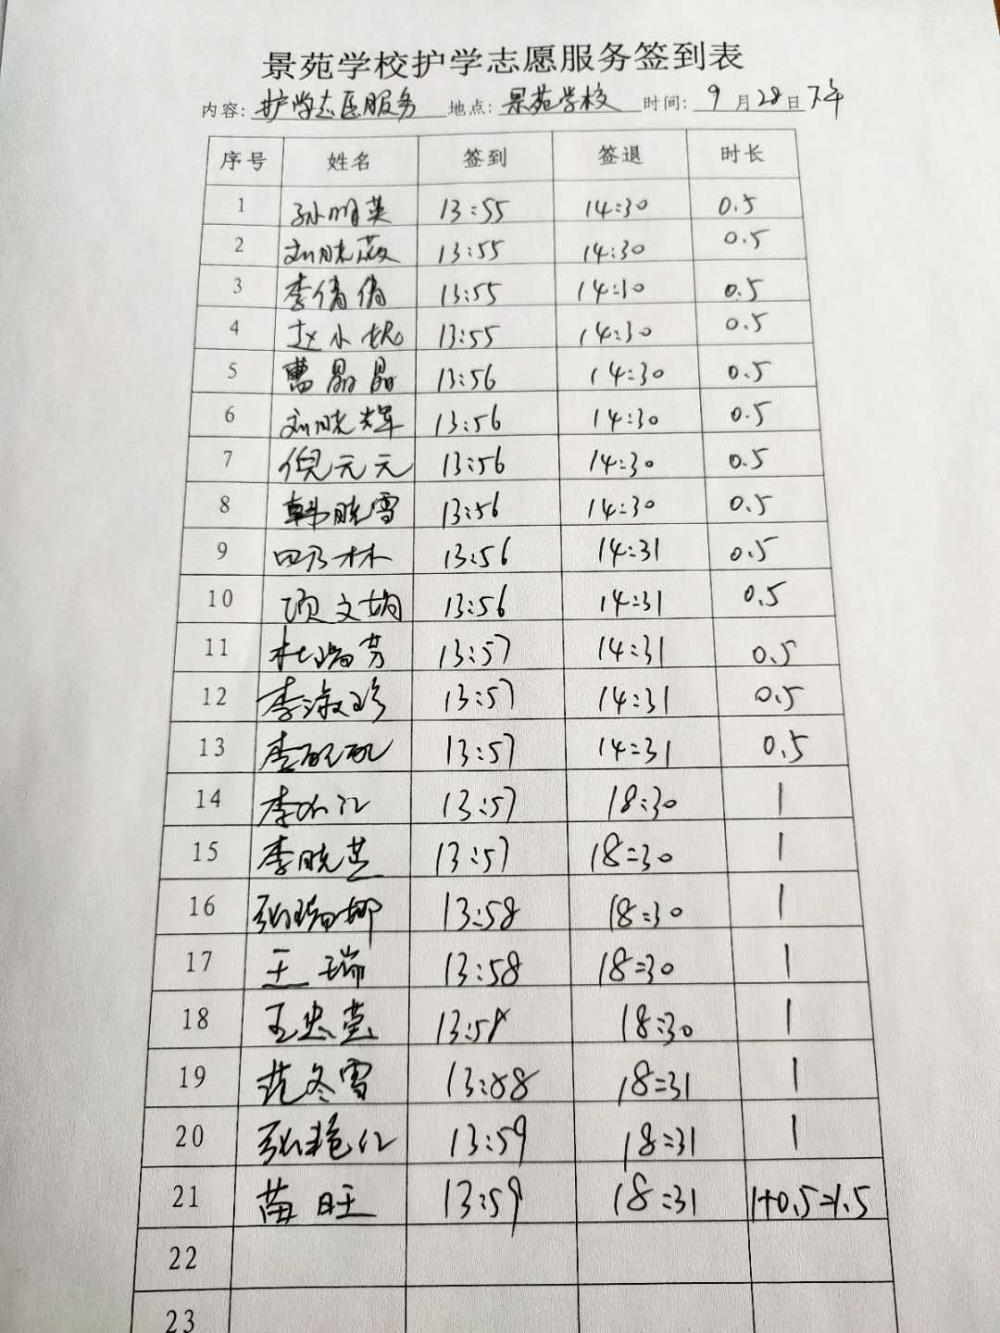 景苑学校护学志愿服务签到表
内容: 护学志愿服务 地点: 景苑学校 时间: 9月28日下午
序号 姓名 签到 签退 时长
1 孙明英 13:55 14:30 0.5
2 刘晓薇 13:55 14:30 0.5
3 李倩倩 13:55 14:30 0.5
4 赵小妮 13:55 14:30 0.5
5 曹晶晶 13:56 14:30 0.5
6 刘晓辉 13:56 14:30 0.5
7 倪元元 13:56 14:30 0.5
8 韩晓雪 13:56 14:30 0.5
9 田乃林 13:56 14:31 0.5
10 项文娟 13:56 14:31 0.5
11 杜瑞芳 13:57 14:31 0.5
12 李淑珍 13:57 14:31 0.5
13 李 13:57 14:31 0.5
14 李 13:57 18:30 1
15 李晓芝 13:57 18:30 1
16 张瑞娜 13:58 18:30 1
17 王瑞 13:58 18:30 1
18 王忠莹 13:58 18:30 1
19 范冬雪 13:58 18:31 1
20 张艳红 13:59 18:31 1
21 苗旺 13:59 18:31 1+0.5=1.5
22
23